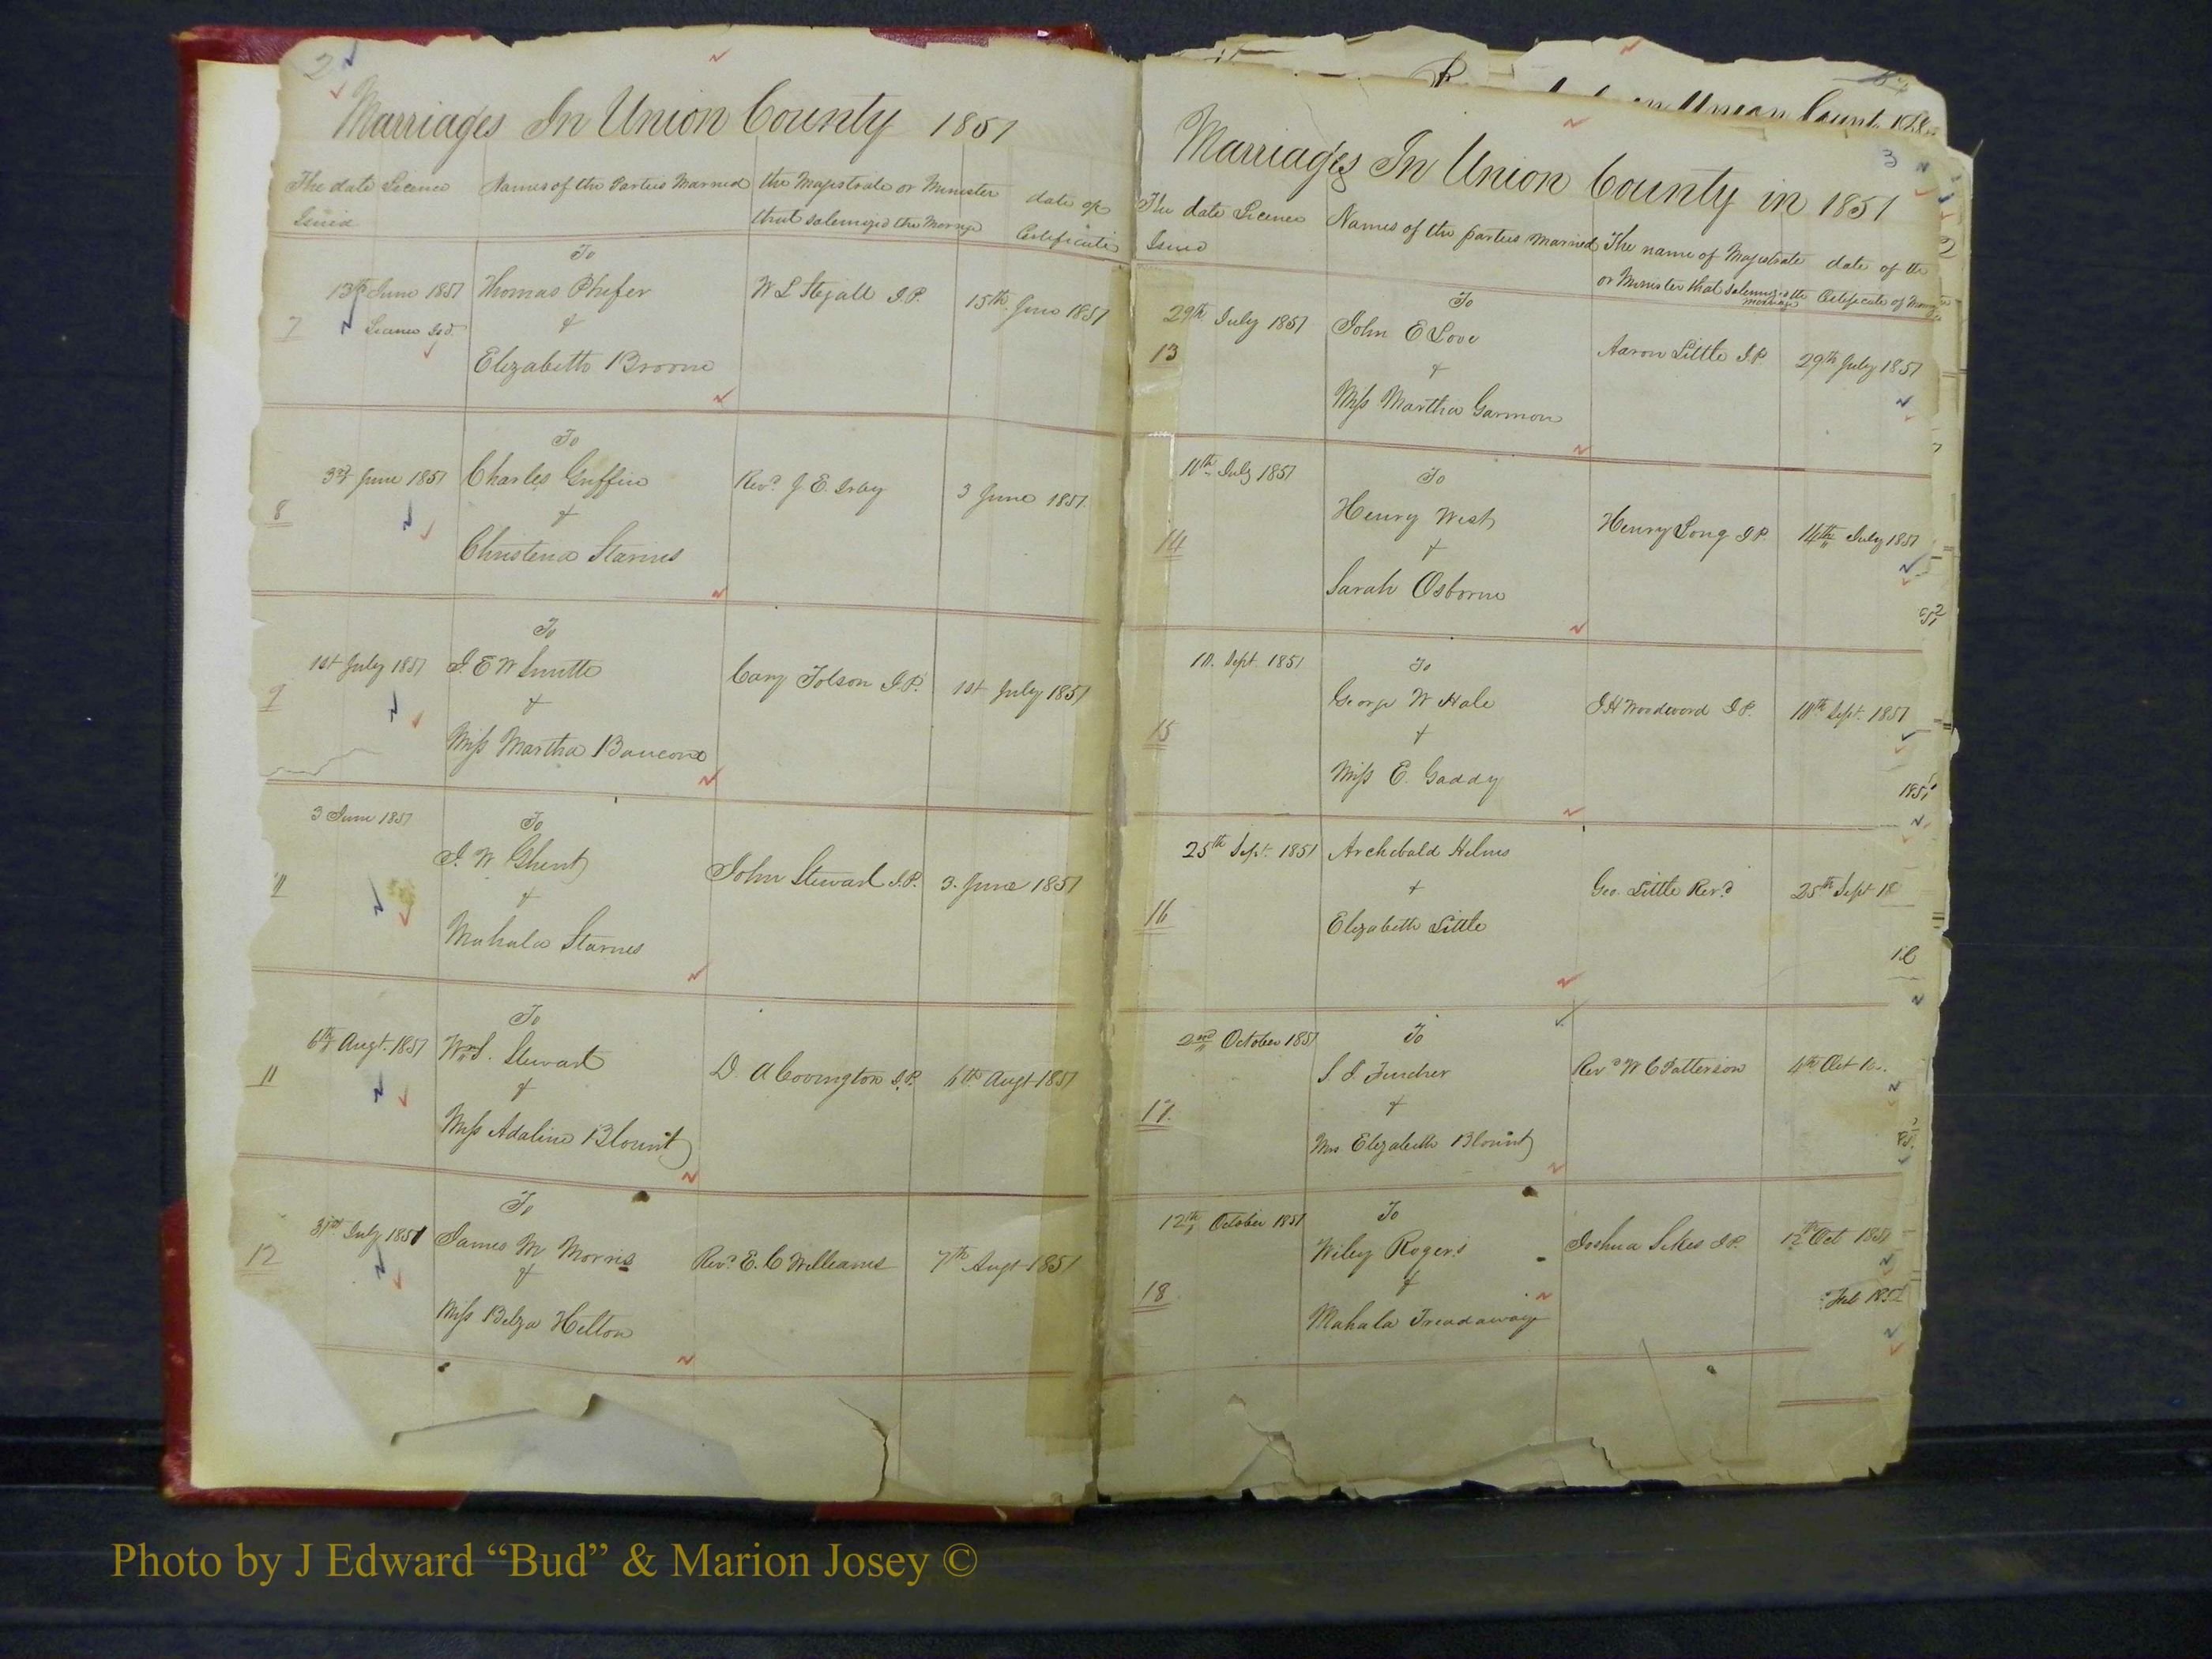 2
Marriages In Union County 1851
The date Licence Names of the Parties Married the Majestrate or Minister date of
Issued that solemnized the Marrage Certificate
To
13th June 1851 Thomas Phifer W L Stegall J.P. 15th June 1851
7 Licence Isd. &
Elizabeth Broom
To
3rd June 1851 Charles Griffin Revd. J. E. Gray 3 June 1851
8 &
Christena Starnes
To
1st July 1851 J. E W Smith Cary Tolson J.P. 1st July 1851
9 &
Miss Martha Baucom
3 June 1851 To
J. W. Ghent John Steward J.P. 3. June 1851
&
Mahala Starnes
To
6th Augt. 1851 Wm S. Steward D. A Covington J.P. 6th Augt 1851
11 &
Miss Adaline Blount
To
31st July 1851 James M Morris Revd. E. C Williams 7th Augt 1851
12 &
Miss Belza Helton
Union Count
3
Marriages In Union County in 1851
The date Licence Names of the parties Married The name of Majestrate date of the
Issued or Minister that solemnized the marriage Certificate of
To
29th July 1851 John E Love Aaron Little J.P. 29th July 1851
13 &
Miss Martha Garmon
July 1851 To
Henry West Henry Long J.P. 14th July 1851
14 &
Sarah Osborne
Sept. 1851 To
George W Hale J H Woodward J.P. Sept. 1851
15 &
Miss E. Gaddy
25th Sept. 1851 Archebald Helms
& Geo. Little Revd. 25th Sept 18
16
Elizabeth Little
2nd October 1851 To
S. J. Funcher Revd W C Patterson 4th Oct
17. &
Mrs Elizabeth Blount
12th October 1851 To
Wiley Rogers Joshua Sikes J.P. 12th Oct 1851
18 &
Mahala Treadaway
Photo by J Edward “Bud” & Marion Josey ©